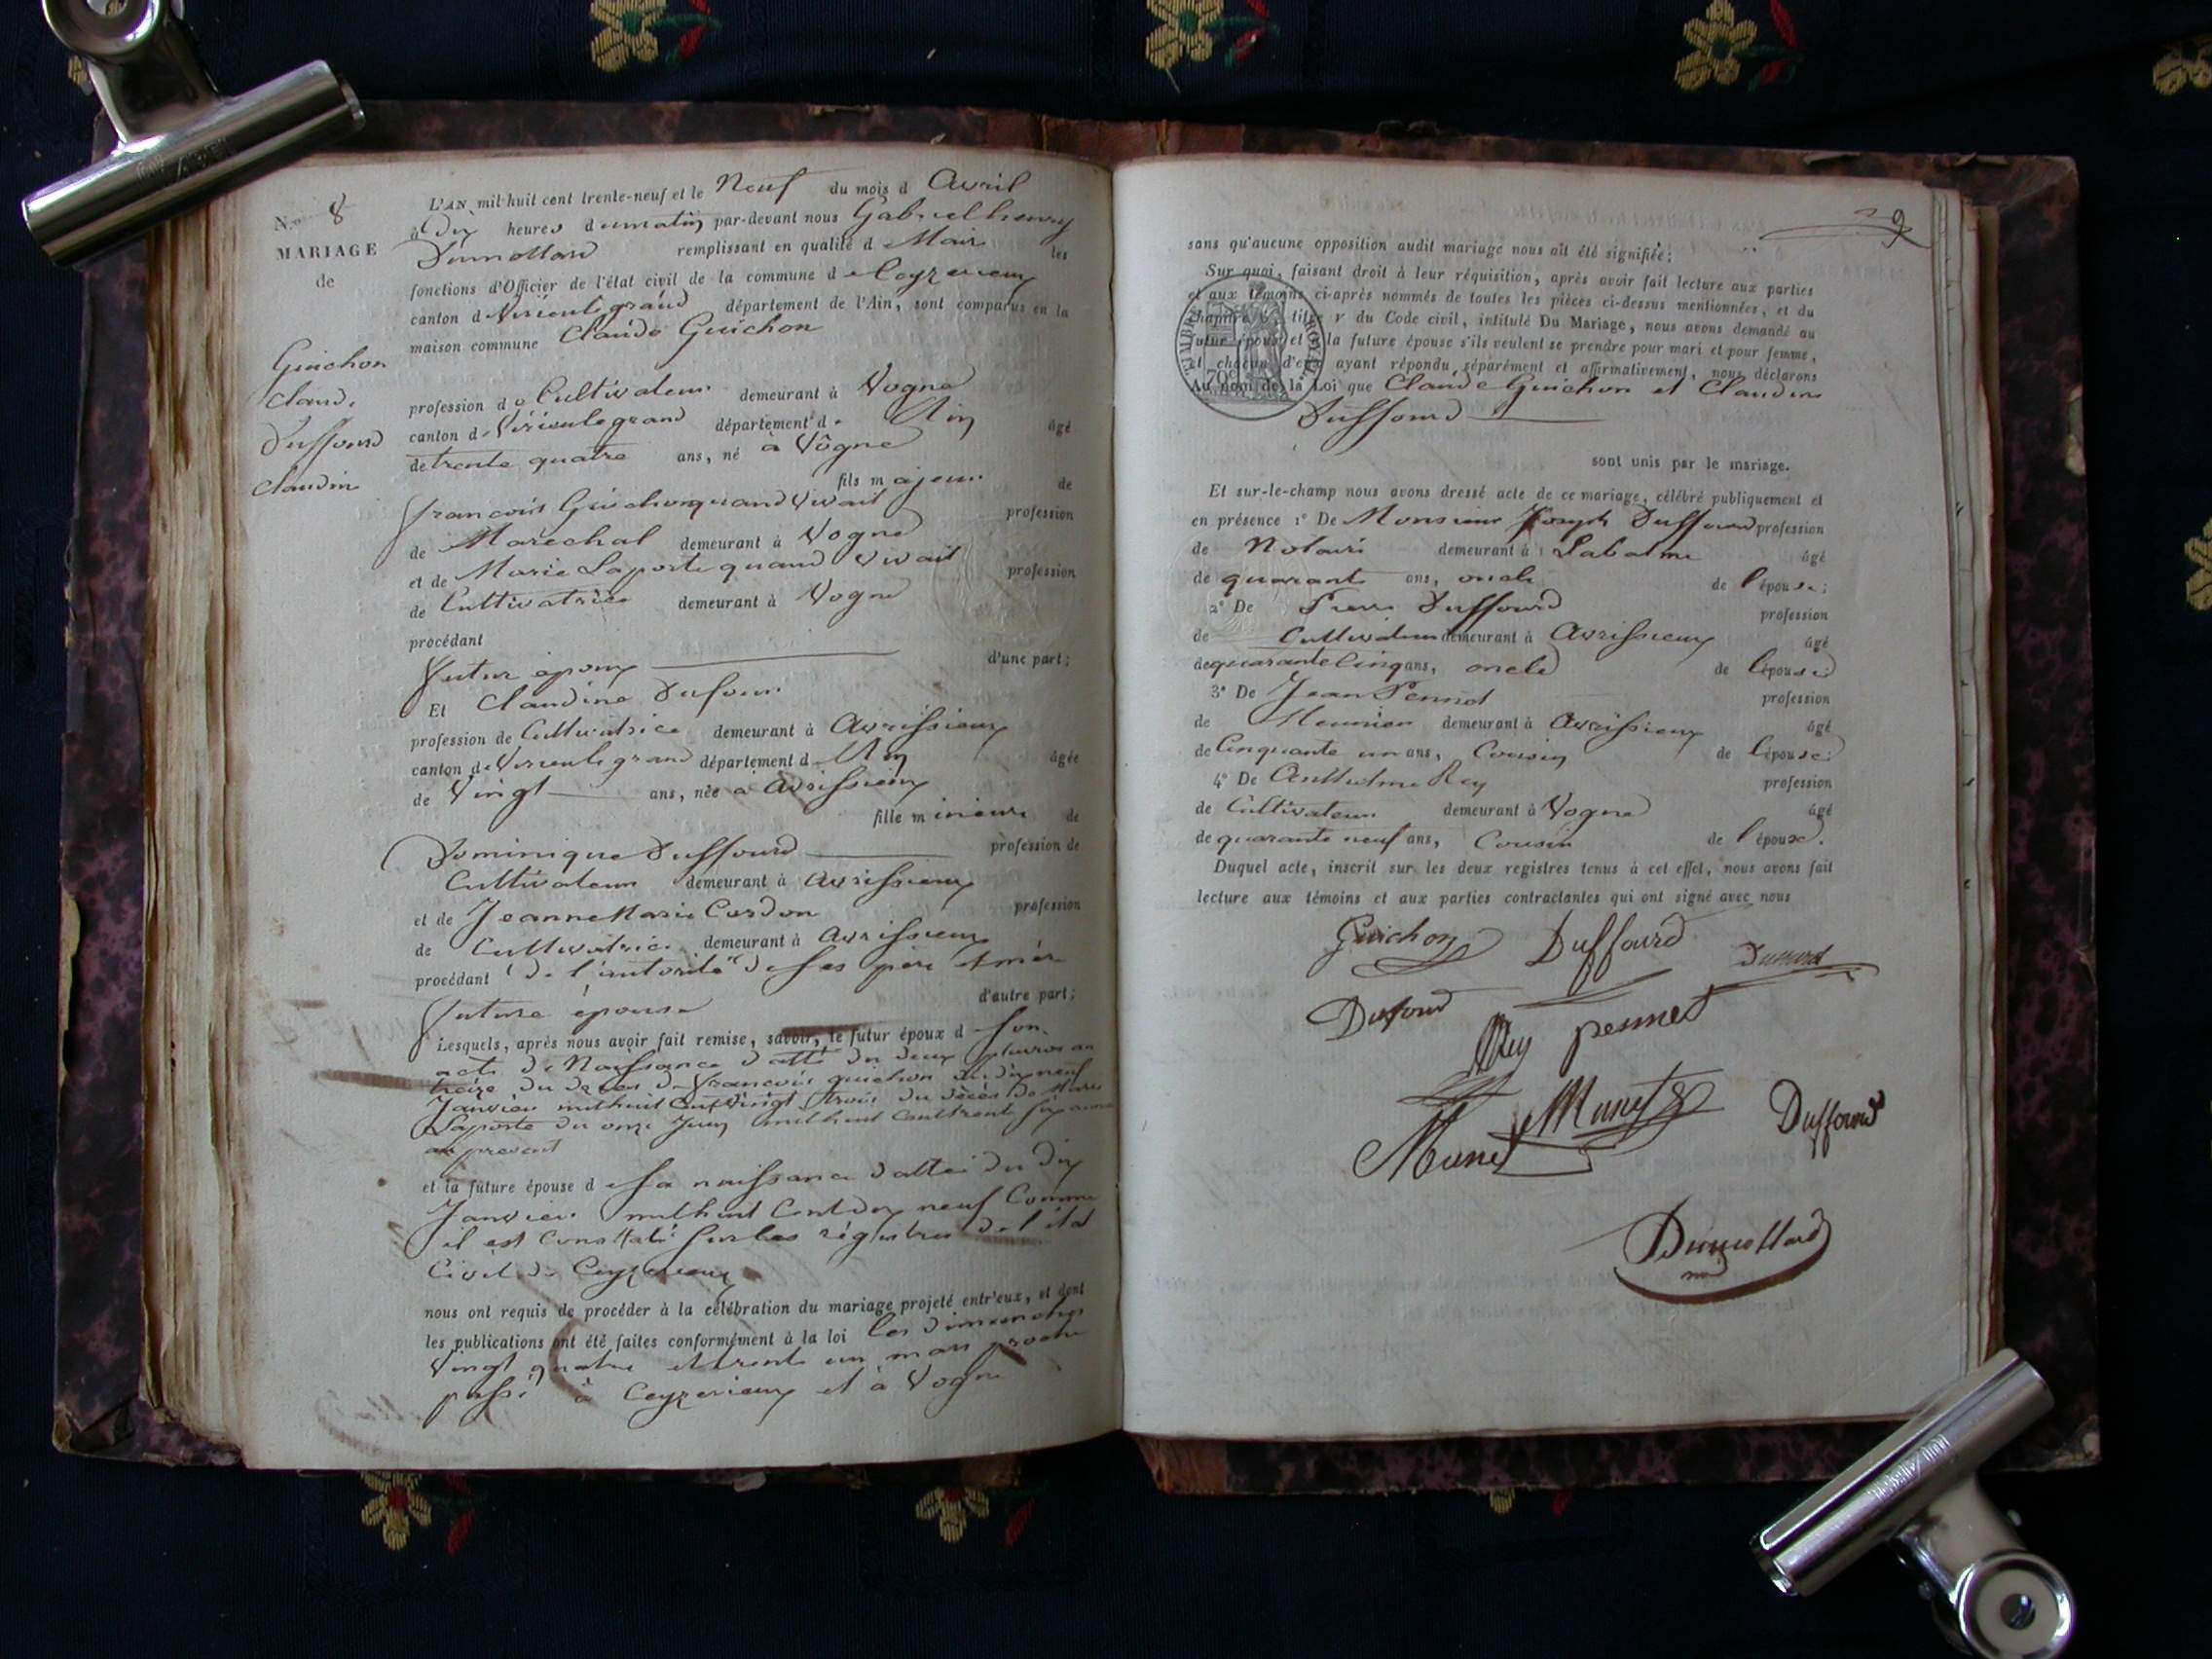 N.o 8
MARIAGE
de
Guichon
Claude
Duffourd
Claudine
L'AN mil huit cent trente-neuf et le Neuf du mois d Avril
à Dix heures du matin par-devant nous Gabriel henry
Dumollard remplissant en qualité d Maire les
fonctions d'Officier de l'état civil de la commune de Ceyzerieux
canton de Virieulegrand département de l'Ain, sont comparus en la
maison commune Claude Guichon
profession de Cultivateur demeurant à Vogne
canton de Virieulegrand département de Ain âgé
de trente quatre ans, né à Vôgne
fils majeur de
francois Guichon quand vivait profession
de Maréchal demeurant à Vogne
et de Marie Laporte quand vivait profession
de Cultivatrice demeurant à Vogne
procédant
futur époux d'une part;
Et Claudine Dufour
profession de Cultivatrice demeurant à Avrissieux
canton de Virieulegrand département d Ain âgée
de Vingt ans, née à Avrissieux
fille mineure de
Dominique Duffourd profession de
Cultivateur demeurant à Avrissieux
et de Jeanne Marie Cardon profession
de Cultivatrice demeurant à Avrissieux
procédant de l'autorité de ses père et mère
future épouse d'autre part;
Lesquels, après nous avoir fait remise, savoir, le futur époux d son
acte de Naissance datté du deux pluviose an
treize du deces de francois guichon du dix neuf
Janvier mil huit Cent vingt trois du décès de Marie
Laporte du onze Juin mil huit Cent trente six
au présent
et la future épouse d sa naissance dattée du Dix
Janvier mil huit Cent dix neuf Comme
il est Constaté sur les régistres de l'état
Civil de Ceyzerieux
nous ont requis de procéder à la célébration du mariage projeté entr'eux, et dont
les publications ont été faites conformément à la loi les dimanches
Vingt quatre et trente un mars proche
passé à Ceyzerieux et à Vogne
9
sans qu'aucune opposition audit mariage nous ait été signifiée;
Sur quoi, faisant droit à leur réquisition, après avoir fait lecture aux parties
et aux témoins ci-après nommés de toutes les pièces ci-dessus mentionnées, et du
chapitre 6, titre V du Code civil, intitulé Du Mariage, nous avons demandé au
futur époux et à la future épouse s'ils veulent se prendre pour mari et pour femme,
et chacun d'eux ayant répondu séparément et affirmativement, nous déclarons
Au nom de la Loi que Claude Guichon et Claudine
TIMBRE ROYAL
70c
Duffourd
sont unis par le mariage.
Et sur-le-champ nous avons dressé acte de ce mariage, célébré publiquement et
en présence 1° De Monsieur Joseph Duffourd profession
de Notaire demeurant à Labalme âgé
de quarante ans, oncle de l'épouse;
2° De Pierre Duffourd profession
de Cultivateur demeurant à Avrissieux âgé
de quarante Cinq ans, oncle de l'épouse;
3° De Jean Pennet profession
de Meunier demeurant à Avrissieux âgé
de Cinquante un ans, Cousin de l'épouse;
4° De Anthelme Rey profession
de Cultivateur demeurant à Vogne âgé
de quarante neuf ans, Cousin de l'époux.
Duquel acte, inscrit sur les deux registres tenus à cet effet, nous avons fait
lecture aux témoins et aux parties contractantes qui ont signé avec nous
Guichon Duffourd
Duffourd
Rey pennet
Munet
Munet Duffourd
Dumollard